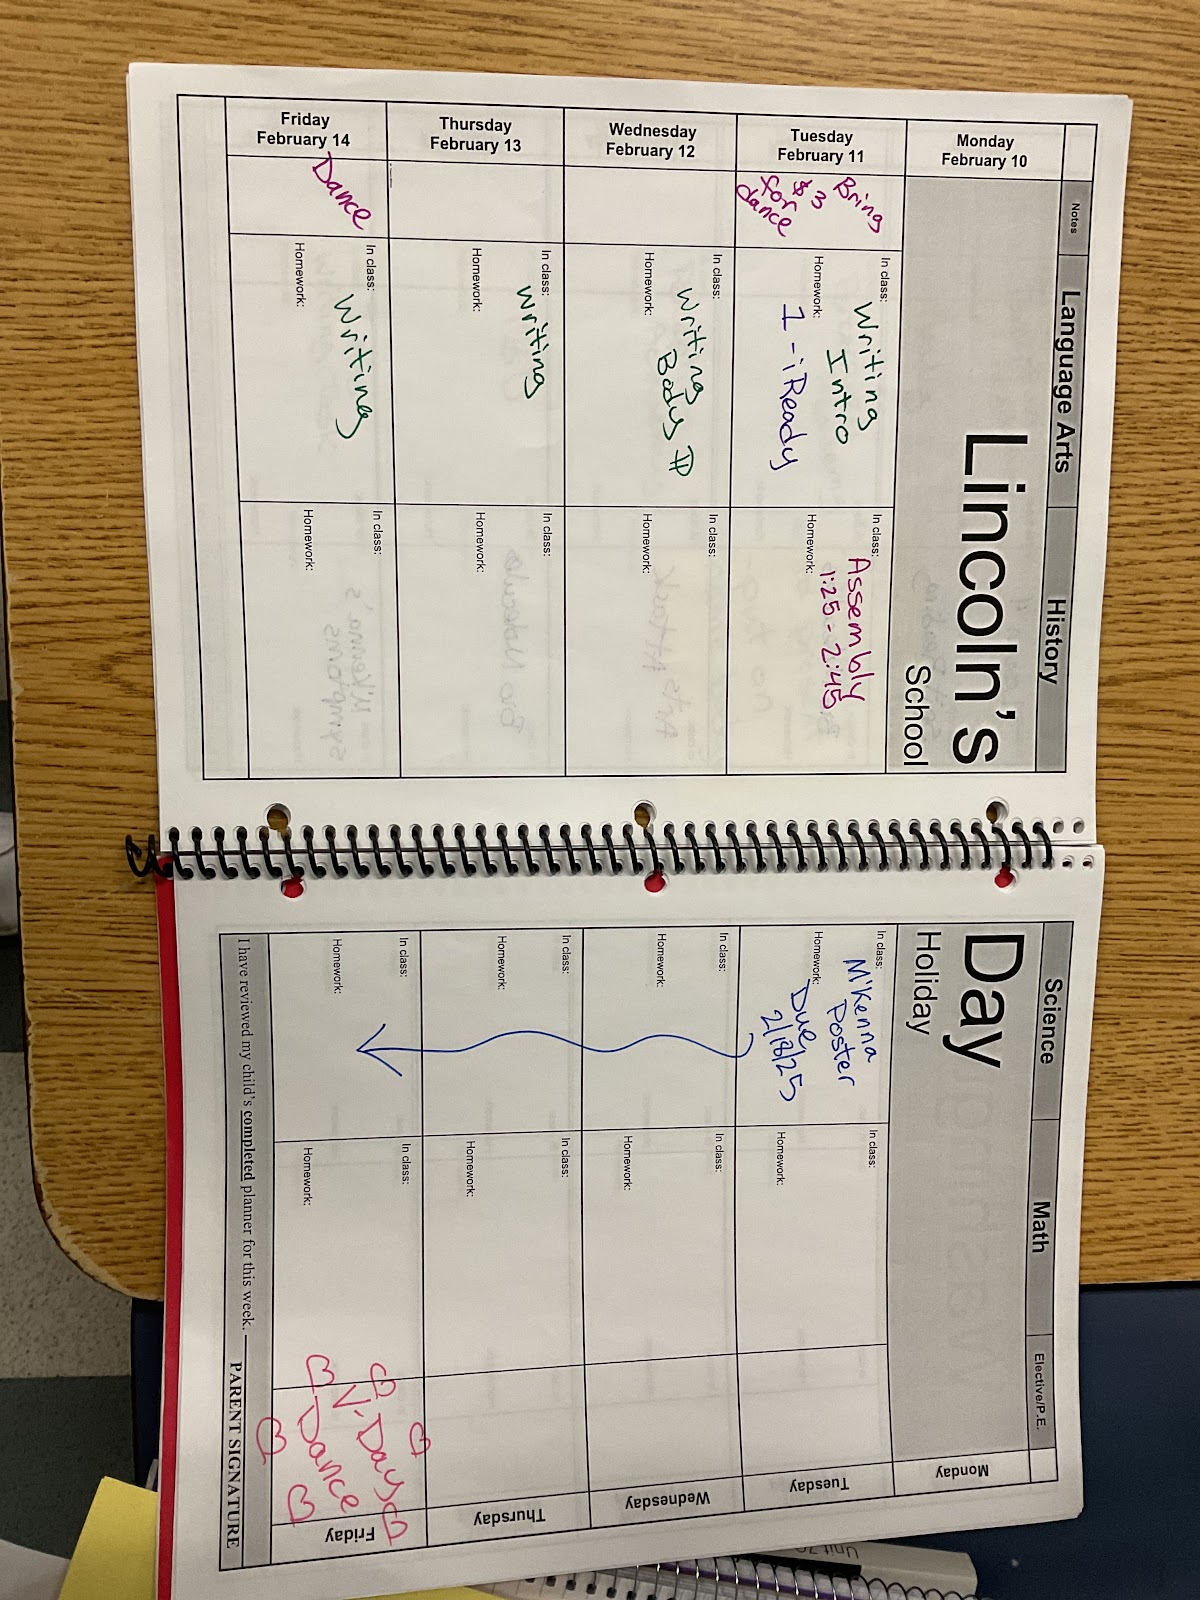 Notes
Language Arts
History
Science
Math
Elective/P.E.
Monday
February 10
Lincoln's
School
Day
Holiday
Monday
Tuesday
February 11
Bring
$3
for
dance
In class:
Writing
Intro
Homework:
1 - iReady
In class:
Assembly
1:25 - 2:45
Homework:
In class:
M'Kenna
Poster
Homework:
Due
2/18/25
In class:
Homework:
Tuesday
Wednesday
February 12
In class:
Writing
Body
Homework:
In class:
Homework:
In class:
Homework:
In class:
Homework:
Wednesday
Thursday
February 13
In class:
Writing
Homework:
In class:
Homework:
In class:
Homework:
In class:
Homework:
Thursday
Friday
February 14
Dance
In class:
Writing
Homework:
In class:
Homework:
In class:
Homework:
In class:
Homework:
V-Day
Dance
Friday
I have reviewed my child's completed planner for this week.
PARENT SIGNATURE